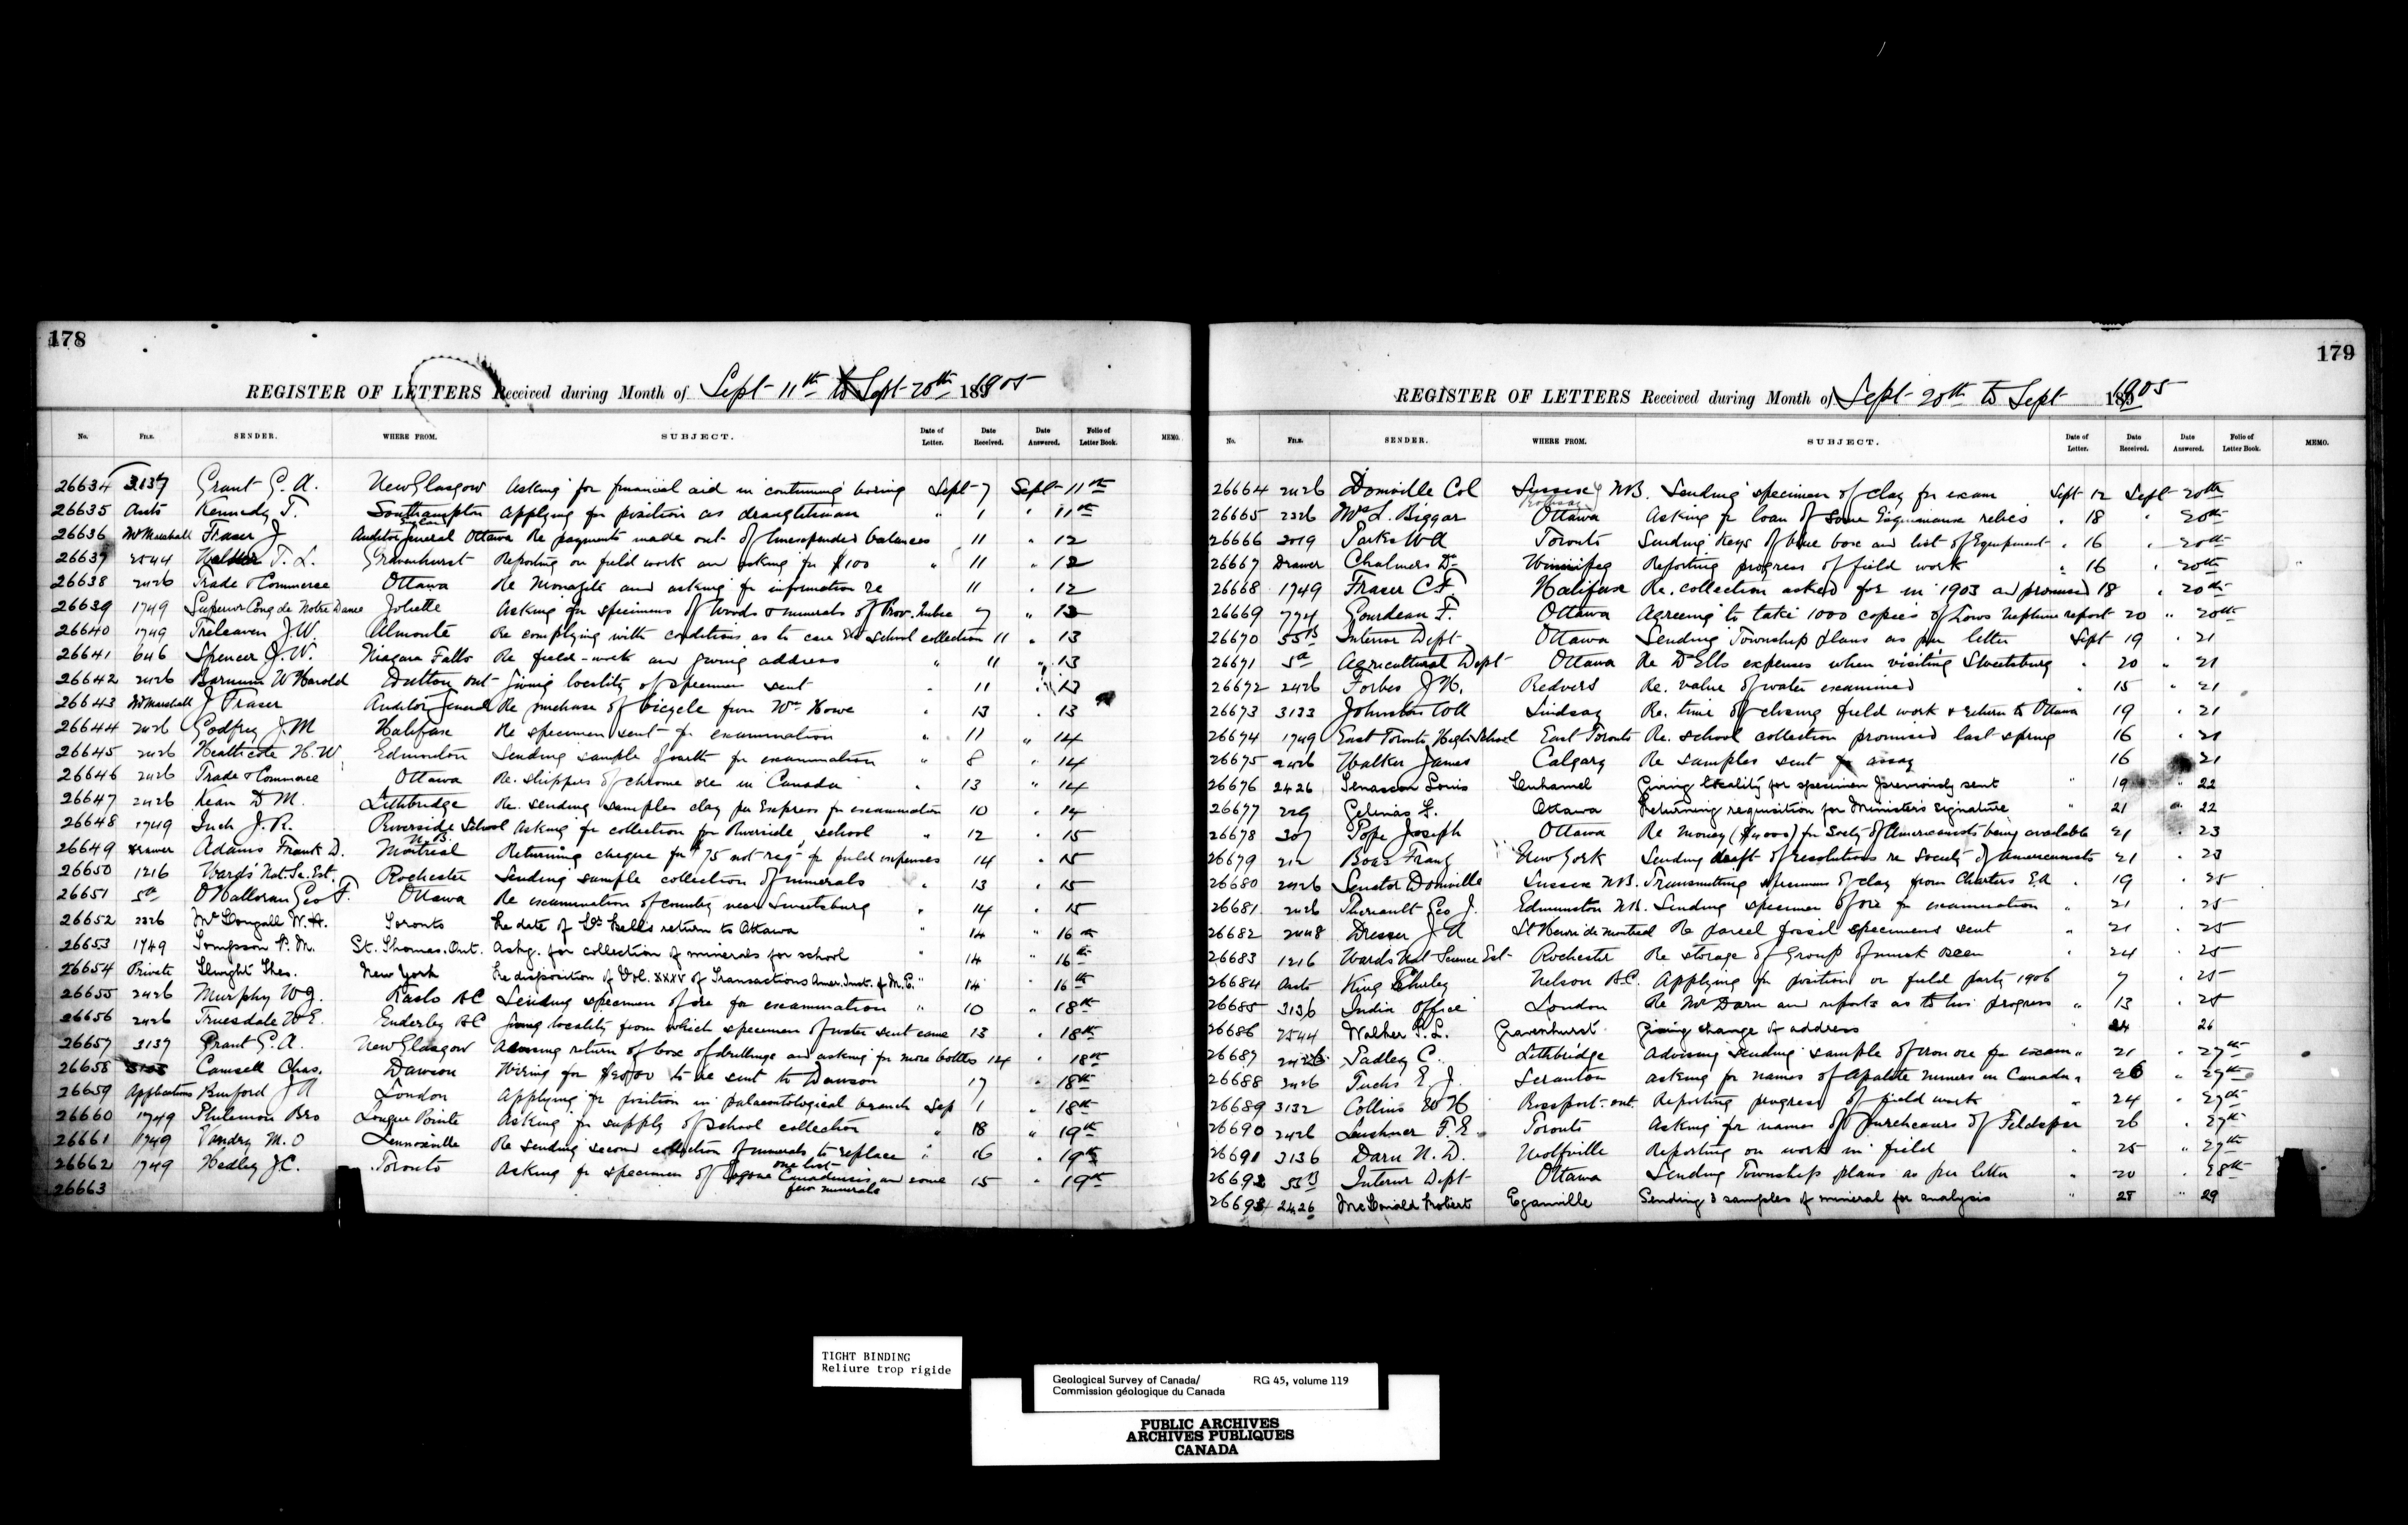 178
REGISTER OF LETTERS Received during Month of Sept 11th to Sept 20th 1905
No. FILE. SENDER. WHERE FROM. SUBJECT. Date of Letter. Date Received. Date Answered. Folio of Letter Book. MEMO.
26634 3137 Grant G. A. New Glasgow Asking for financial aid in continuing boring Sept 7 Sept 11th
26635 Kennedy T. Southampton Applying for position as draughtsman " 1 " 11th
26636 Mr Marshall Fraser J Auditor General Ottawa Re payments made out of Unexpended balances 11 " 12
26637 2544 Walker T. L. Gravenhurst Reporting on field work and asking for $100 " 11 " 12
26638 2426 Trade & Commerce Ottawa Re Monazite and asking for information re 11 " 12
26639 1749 Superior Cong de Notre Dame Joliette Asking for specimens of Woods & minerals of Prov. Quebec 7 " 13
26640 1749 Treleaven J. W. Almonte Re complying with conditions as to care of School collection 11 " 13
26641 646 Spencer J. W. Niagara Falls Re field-work and giving address " 11 " 13
26642 2426 Barnum W Harold Dutton Ont Giving locality of specimen sent " 11 " 13
26643 Mr Marshall J Fraser Auditor General Re purchase of bicycle from Wm Howe " 13 " 13
26644 2426 Godfrey J. M Halifax Re specimen sent for examination " 11 " 14
26645 2426 Heathcote H. W. Edmonton Sending sample of earth for examination " 8 " 14
26646 2426 Trade & Commerce Ottawa Re. shippers of chrome ore in Canada " 13 " 14
26647 2426 Kean D M. Lethbridge Re. sending samples clay per Express for examination 10 " 14
26648 1749 Inch J. R. Riverside School N.B. Asking for collection for Riverside school " 12 " 15
26649 Drawer Adams Frank D. Montreal Returning cheque for $75 not reqd for field expenses 14 " 15
26650 1216 Ward's Nat. Sc. Est. Rochester Sending sample collection of minerals " 13 " 15
26651 5a O'Halloran Geo F. Ottawa Re examination of country near Sweetsburg " 14 " 15
26652 2226 McDougall W. H. Toronto Re date of Dr Bells return to Ottawa " 14 " 16th
26653 1749 St. Thomas. Ont. Askg. for collection of minerals for school " 14 " 16th
26654 Private New York Re disposition of Vol. XXXV of Transactions Amer. Inst. of M. E. " 14 " 16th
26655 2426 Murphy W. J. Kaslo BC Sending specimen of ore for examination " 10 " 18th
26656 2426 Truesdale W E. Enderby BC Giving locality from which specimen of water sent came 13 " 18th
26657 3137 Grant G. A. New Glasgow Advising return of box of drillings and asking for more bottles 14 " 18th
26658 Camsell Chas. Dawson Wiring for to be sent to Dawson 17 " 18th
26659 Applications Binford J A London Applying for position in palaeontological branch Sep 1 " 18th
26660 1749 Philemon Bro Longue Pointe Asking for supply of school collection " 18 " 19th
26661 1749 Vandry M. O Lennoxville Re sending second collection of minerals to replace one lost " 16 " 19th
26662 1749 Hedley J C. Toronto Asking for specimen of Eozoon Canadensis and some few minerals 15 " 19th
26663
179
REGISTER OF LETTERS Received during Month of Sept 20th to Sept 1905
No. FILE. SENDER. WHERE FROM. SUBJECT. Date of Letter. Date Received. Date Answered. Folio of Letter Book. MEMO.
26664 2426 Domville Col Sussex N.B. Sending specimen of clay for exam Sept 12 Sept 20th
26665 2226 Mrs L. Biggar Ottawa Asking for loan of some Esquimaux relics " 18 " 20th
26666 2019 Parks W A Toronto Sending Keys of blue box and list of Equipment " 16 " 20th
26667 Drawer Chalmers Dr Winnipeg Reporting progress of field work " 16 " 20th
26668 1749 Fraser C. F. Halifax Re. collection asked for in 1903 and promised 18 " 20th
26669 774 Gourdeau F. Ottawa Agreeing to take 1000 copies of Lows Neptune report 20 " 20th
26670 55B Interior Dept Ottawa Sending Township plans as per letter Sept 19 " 21
26671 5a Agricultural Dept Ottawa Re Dr Ells expenses when visiting Sweetsburg " 20 " 21
26672 2426 Forbes J H. Redvers Re. value of water examined " 15 " 21
26673 3133 Johnston Lindsay Re. time of closing field work & return to Ottawa 19 " 21
26674 1749 East Toronto High School East Toronto Re. school collection promised last spring 16 " 21
26675 2426 Walker James Calgary Re samples sent for assay 16 21
26676 2426 Senascon Louis Lenhamel Giving locality for specimen previously sent " 19 " 22
26677 229 Gelinas L. Ottawa Returning requisition for Minister's signature " 21 " 22
26678 307 Pope Joseph Ottawa Re Money ($4000) for Socty of Americanists being available 21 " 23
26679 212 Boas Franz New York Sending draft of resolutions re Society of Americanists 21 " 23
26680 2426 Senator Domville Sussex N.B. Transmitting specimens of clay from Charters E. A " 19 " 25
26681 2426 Theriault Geo J. Edmunston N.B. Sending specimen of ore for examination " 21 " 25
26682 2448 Dresser J A St Henri de Montreal Re parcel fossil specimens sent " 21 " 25
26683 1216 Wards Nat Science Est Rochester Re storage of Group of musk oxen " 24 " 25
26684 King Nelson B.C. Applying for position on field party 1906 7 " 25
26685 3136 India Office London Re Mr Daru and reports as to his progress " 13 " 25
26686 2544 Walker T. L. Gravenhurst Giving change of address " 24 26
26687 2426 Padley C. Lethbridge Advising sending sample of iron ore for exam " 21 " 27th
26688 2426 Fuchs E. J. Scranton Asking for names of Apatite miners in Canada " 26 " 27th
26689 3132 Collins W H Rossport. Ont. Reporting progress of field work " 24 " 27th
26690 2426 Lushner F. E. Toronto Asking for names of purchasers of Feldspar 26 " 27th
26691 3136 Daru N. D. Wolfville Reporting on work in field " 25 " 27th
26692 55B Interior Dept Ottawa Sending Township plans as per letter " 20 " 28th
26693 2426 McDonald Robert Eganville Sending 3 samples of mineral for analysis " 28 " 29
TIGHT BINDING
Reliure trop rigide
Geological Survey of Canada/ RG 45, volume 119
Commission géologique du Canada
PUBLIC ARCHIVES
ARCHIVES PUBLIQUES
CANADA